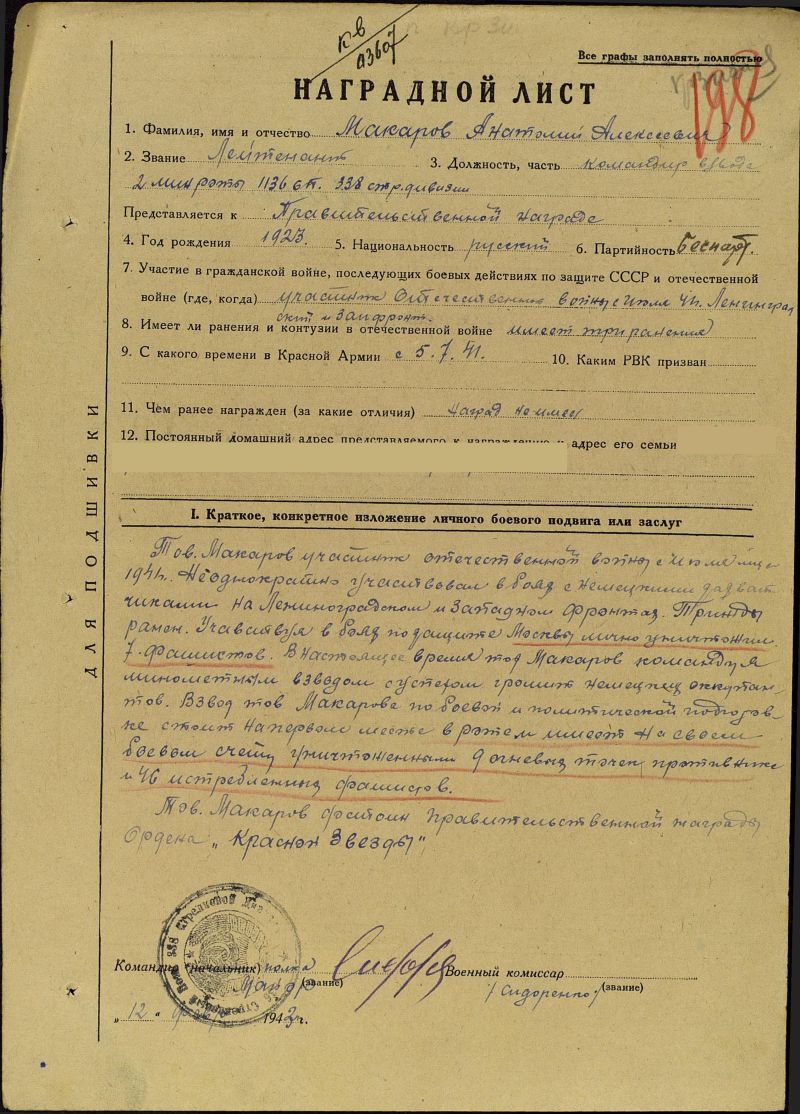 КВ
Все графы заполнять полностью
198
НАГРАДНОЙ ЛИСТ
1. Фамилия, имя и отчество Макаров Анатолий Алексеевич
2. Звание Лейтенант 3. Должность, часть командир взвода
2 мин роты 1136 сп. 338 стр. дивизии
Представляется к Правительственной награде
4. Год рождения 1923. 5. Национальность русский 6. Партийность беспарт.
7. Участие в гражданской войне, последующих боевых действиях по защите СССР и отечественной
войне (где, когда) участник Отечественной войны с июля 41г. Ленинград
ский и Запфронт.
8. Имеет ли ранения и контузии в отечественной войне имеет три ранения
9. С какого времени в Красной Армии с 5.7.41. 10. Каким РВК призван
11. Чем ранее награжден (за какие отличия) наград не имеет
12. Постоянный домашний адрес представляемого к награждению и адрес его семьи
I. Краткое, конкретное изложение личного боевого подвига или заслуг
Тов. Макаров участник отечественной войны с июля м-ца
1941г. Неоднократно участвовал в боях с немецкими захват
чиками на Ленинградском и Западном фронтах. Трижды
ранен. Участвуя в боях по защите Москвы лично уничтожил
7-фашистов. В настоящее время тов Макаров командуя
минометным взводом с успехом громит немецких оккупан
тов. Взвод тов Макарова по боевой и политической подготов-
ке стоит на первом месте в роте и имеет на своем
боевом счету уничтоженными 9 огневых точек противника
и 46 истребленных фашистов.
Тов. Макаров достоин правительственной награды
Ордена „Красной Звезды"
Командир (начальник) полка Военный комиссар
Майор (звание) (звание)
/Сидоренко/
„12" 1943г.
ДЛЯ ПОДШИВКИ